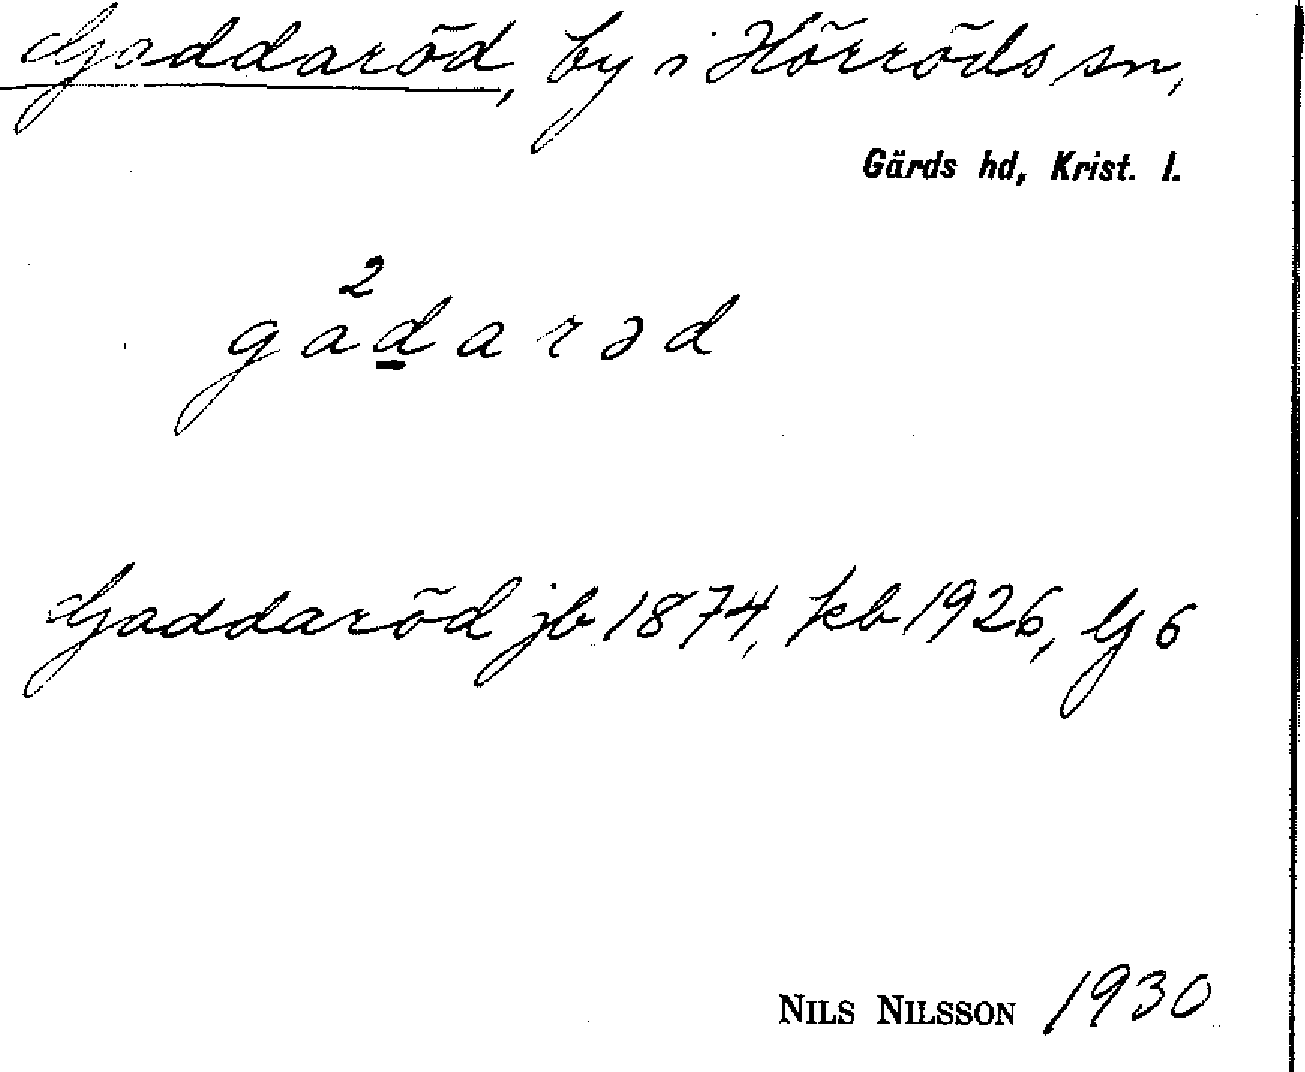 Gaddaröd, by i Hörröds sn,
Gärds hd, Krist. l.
ga²d̲arəd
Gaddaröd jb 1874, kb 1926, G 6
NILS NILSSON 1930